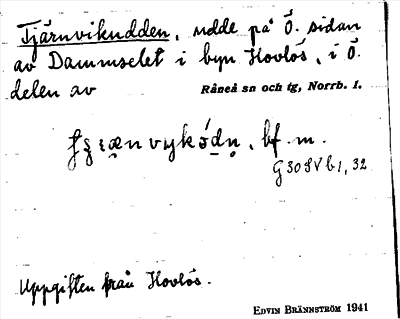 Tjärnvikudden, udde på Ö. sidan
av Dammselet i byn Hovlös, i Ö.
delen av
Råneå sn och tg, Norrb. l.
bf. m.
G 30 SV b 1, 32
Uppgiften från Hovlös.
EDVIN BRÄNNSTRÖM 1941